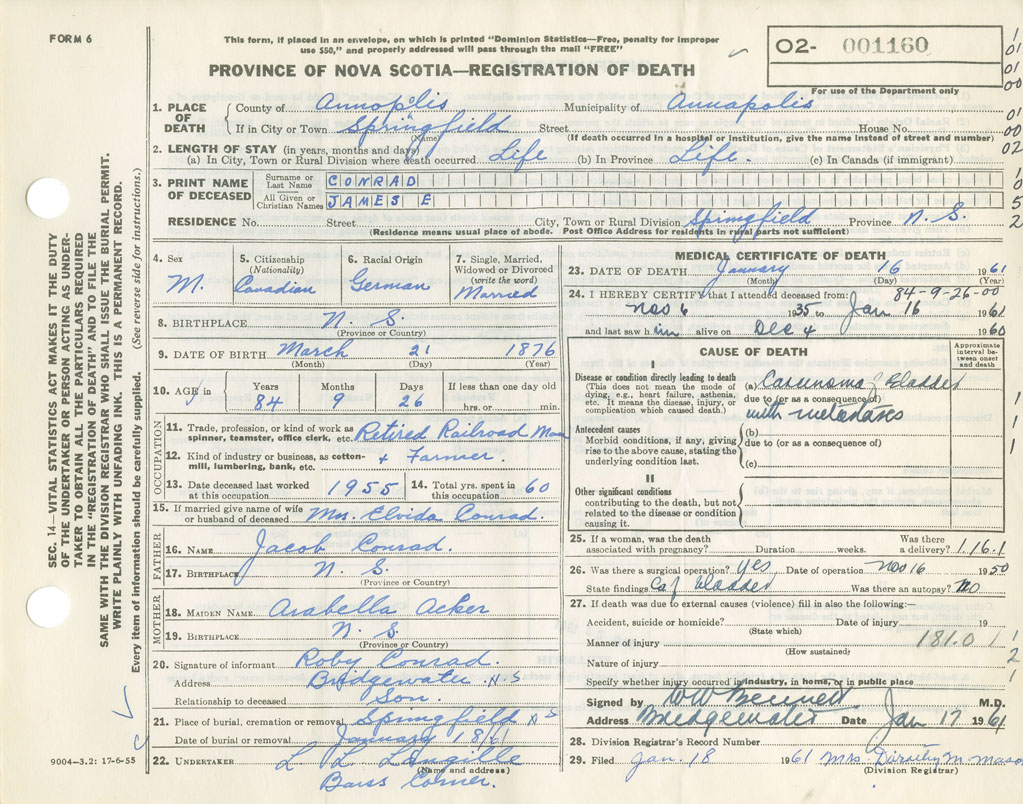 FORM 6
This form, if placed in an envelope, on which is printed "Dominion Statistics—Free, penalty for improper
use $50," and properly addressed will pass through the mail "FREE"
02- 001160
For use of the Department only
PROVINCE OF NOVA SCOTIA—REGISTRATION OF DEATH
1. PLACE OF DEATH County of Annopolis Municipality of Annapolis
If in City or Town Springfield Street House No.
(Name) (If death occurred in a hospital or institution, give the name instead of street and number)
2. LENGTH OF STAY (in years, months and days)
(a) In City, Town or Rural Division where death occurred Life (b) In Province Life. (c) In Canada (if immigrant)
3. PRINT NAME OF DECEASED Surname or Last Name CONRAD
All Given or Christian Names JAMES E
RESIDENCE No. Street City, Town or Rural Division Springfield Province N. S.
(Residence means usual place of abode. Post Office Address for residents in rural parts not sufficient)
4. Sex M.
5. Citizenship (Nationality) Canadian
6. Racial Origin German
7. Single, Married, Widowed or Divorced (write the word) Married
8. BIRTHPLACE N. S.
(Province or Country)
9. DATE OF BIRTH March 21 1876
(Month) (Day) (Year)
10. AGE in Years Months Days If less than one day old
84 9 26 hrs. or min.
OCCUPATION
11. Trade, profession, or kind of work as spinner, teamster, office clerk, etc. Retired Railroad Man
12. Kind of industry or business, as cotton-mill, lumbering, bank, etc. + Farmer.
13. Date deceased last worked at this occupation 1955 14. Total yrs. spent in this occupation 60
15. If married give name of wife or husband of deceased Mrs. Elvida Conrad.
FATHER
16. NAME Jacob Conrad.
17. BIRTHPLACE N. S.
(Province or Country)
MOTHER
18. MAIDEN NAME Arabella Acker
19. BIRTHPLACE N. S.
(Province or Country)
20. Signature of informant Roby Conrad.
Address Bridgewater N.S
Relationship to deceased Son.
21. Place of burial, cremation or removal Springfield N S
Date of burial or removal January 18/61
22. UNDERTAKER L L Langille
(Name and address)
Barss Corner.
9004—3.2: 17-6-55
MEDICAL CERTIFICATE OF DEATH
23. DATE OF DEATH January 16 1961
(Month) (Day) (Year)
84-9-26-00
24. I HEREBY CERTIFY that I attended deceased from:
Nov 6 1935 to Jan 16 1961
and last saw him alive on Dec 4 1960
CAUSE OF DEATH
Approximate interval between onset and death
I
Disease or condition directly leading to death (a) Carcinoma of Bladder
(This does not mean the mode of dying, e.g., heart failure, asthenia, etc. It means the disease, injury, or complication which caused death.)
due to (or as a consequence of)
with metastasis
Antecedent causes
Morbid conditions, if any, giving rise to the above cause, stating the underlying condition last.
(b)
due to (or as a consequence of)
(c)
II
Other significant conditions
contributing to the death, but not related to the disease or condition causing it.
25. If a woman, was the death associated with pregnancy? Duration weeks. Was there a delivery? 1.16.1
26. Was there a surgical operation? yes Date of operation Nov 16 1950
State findings Ca of bladder Was there an autopsy? No
27. If death was due to external causes (violence) fill in also the following:—
Accident, suicide or homicide? Date of injury 19
(State which)
Manner of injury 181.0
(How sustained)
Nature of injury
Specify whether injury occurred in industry, in home, or in public place
Signed by W W Bennett M.D.
Address Bridgewater Date Jan 17 1961
28. Division Registrar's Record Number
29. Filed Jan. 18 1961 Mrs Dorothy M. Mason
(Division Registrar)
SEC. 14—VITAL STATISTICS ACT MAKES IT THE DUTY
OF THE UNDERTAKER OR PERSON ACTING AS UNDER-
TAKER TO OBTAIN ALL THE PARTICULARS REQUIRED
IN THE "REGISTRATION OF DEATH" AND TO FILE THE
SAME WITH THE DIVISION REGISTRAR WHO SHALL ISSUE THE BURIAL PERMIT.
WRITE PLAINLY WITH UNFADING INK. THIS IS A PERMANENT RECORD.
Every item of information should be carefully supplied. (See reverse side for instructions.)
1
01
01
00
01
00
02
1
0
5
2
1
1
1
1
2
1